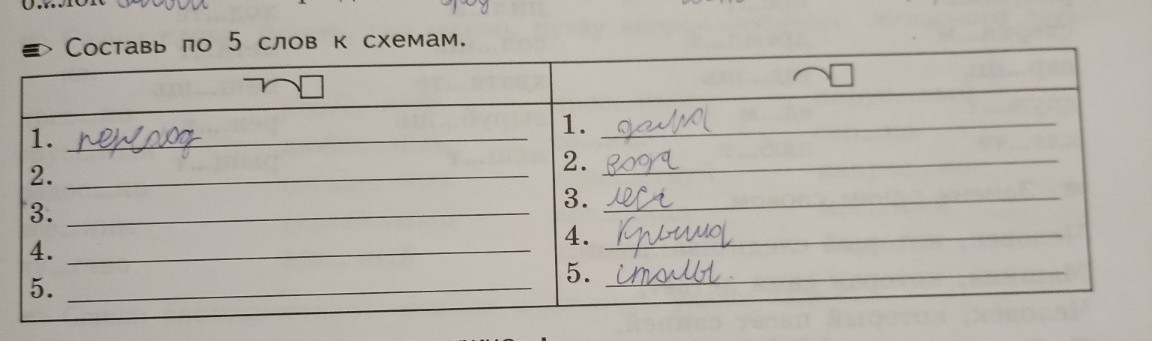 Составь по 5 слов к схемам.
1. переход
2.
3.
4.
5.
1. дама
2. вода
3. леса
4. крыша
5. столы.